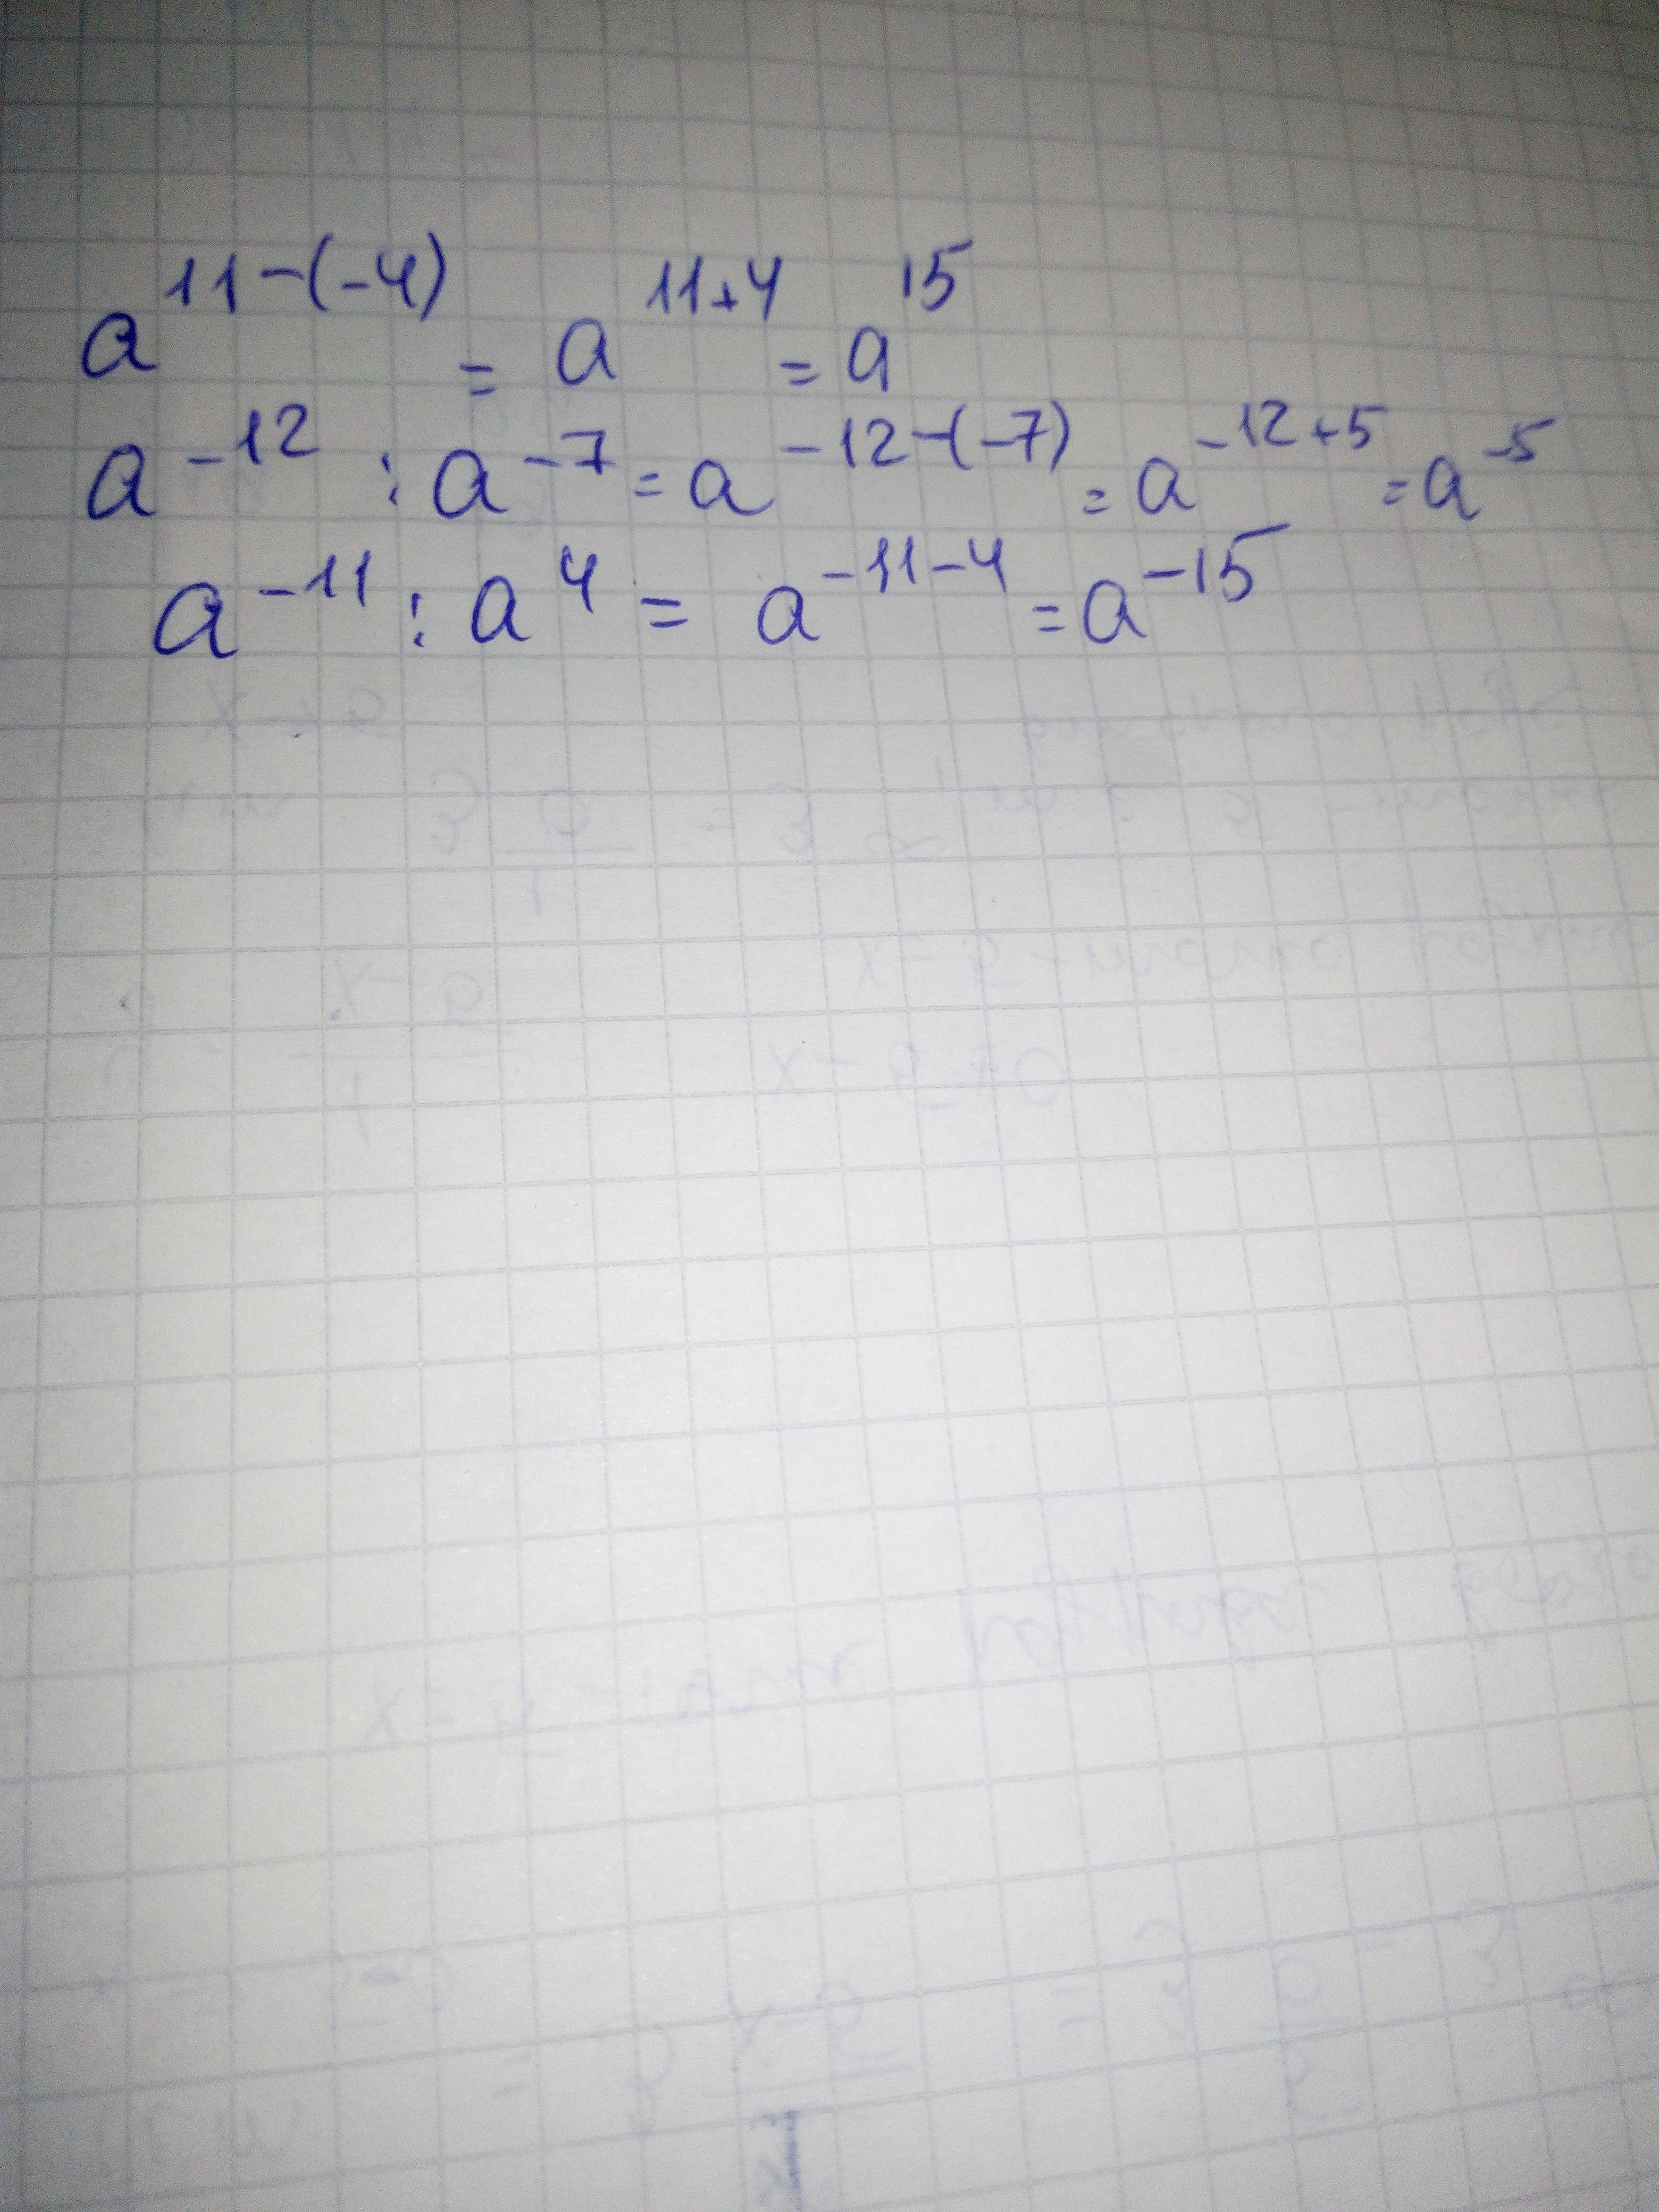 a^{11-(-4)} = a^{11+4} = a^{15}
a^{-12} : a^{-7} = a^{-12-(-7)} = a^{-12+5} = a^{-5}
a^{-11} : a^{4} = a^{-11-4} = a^{-15}